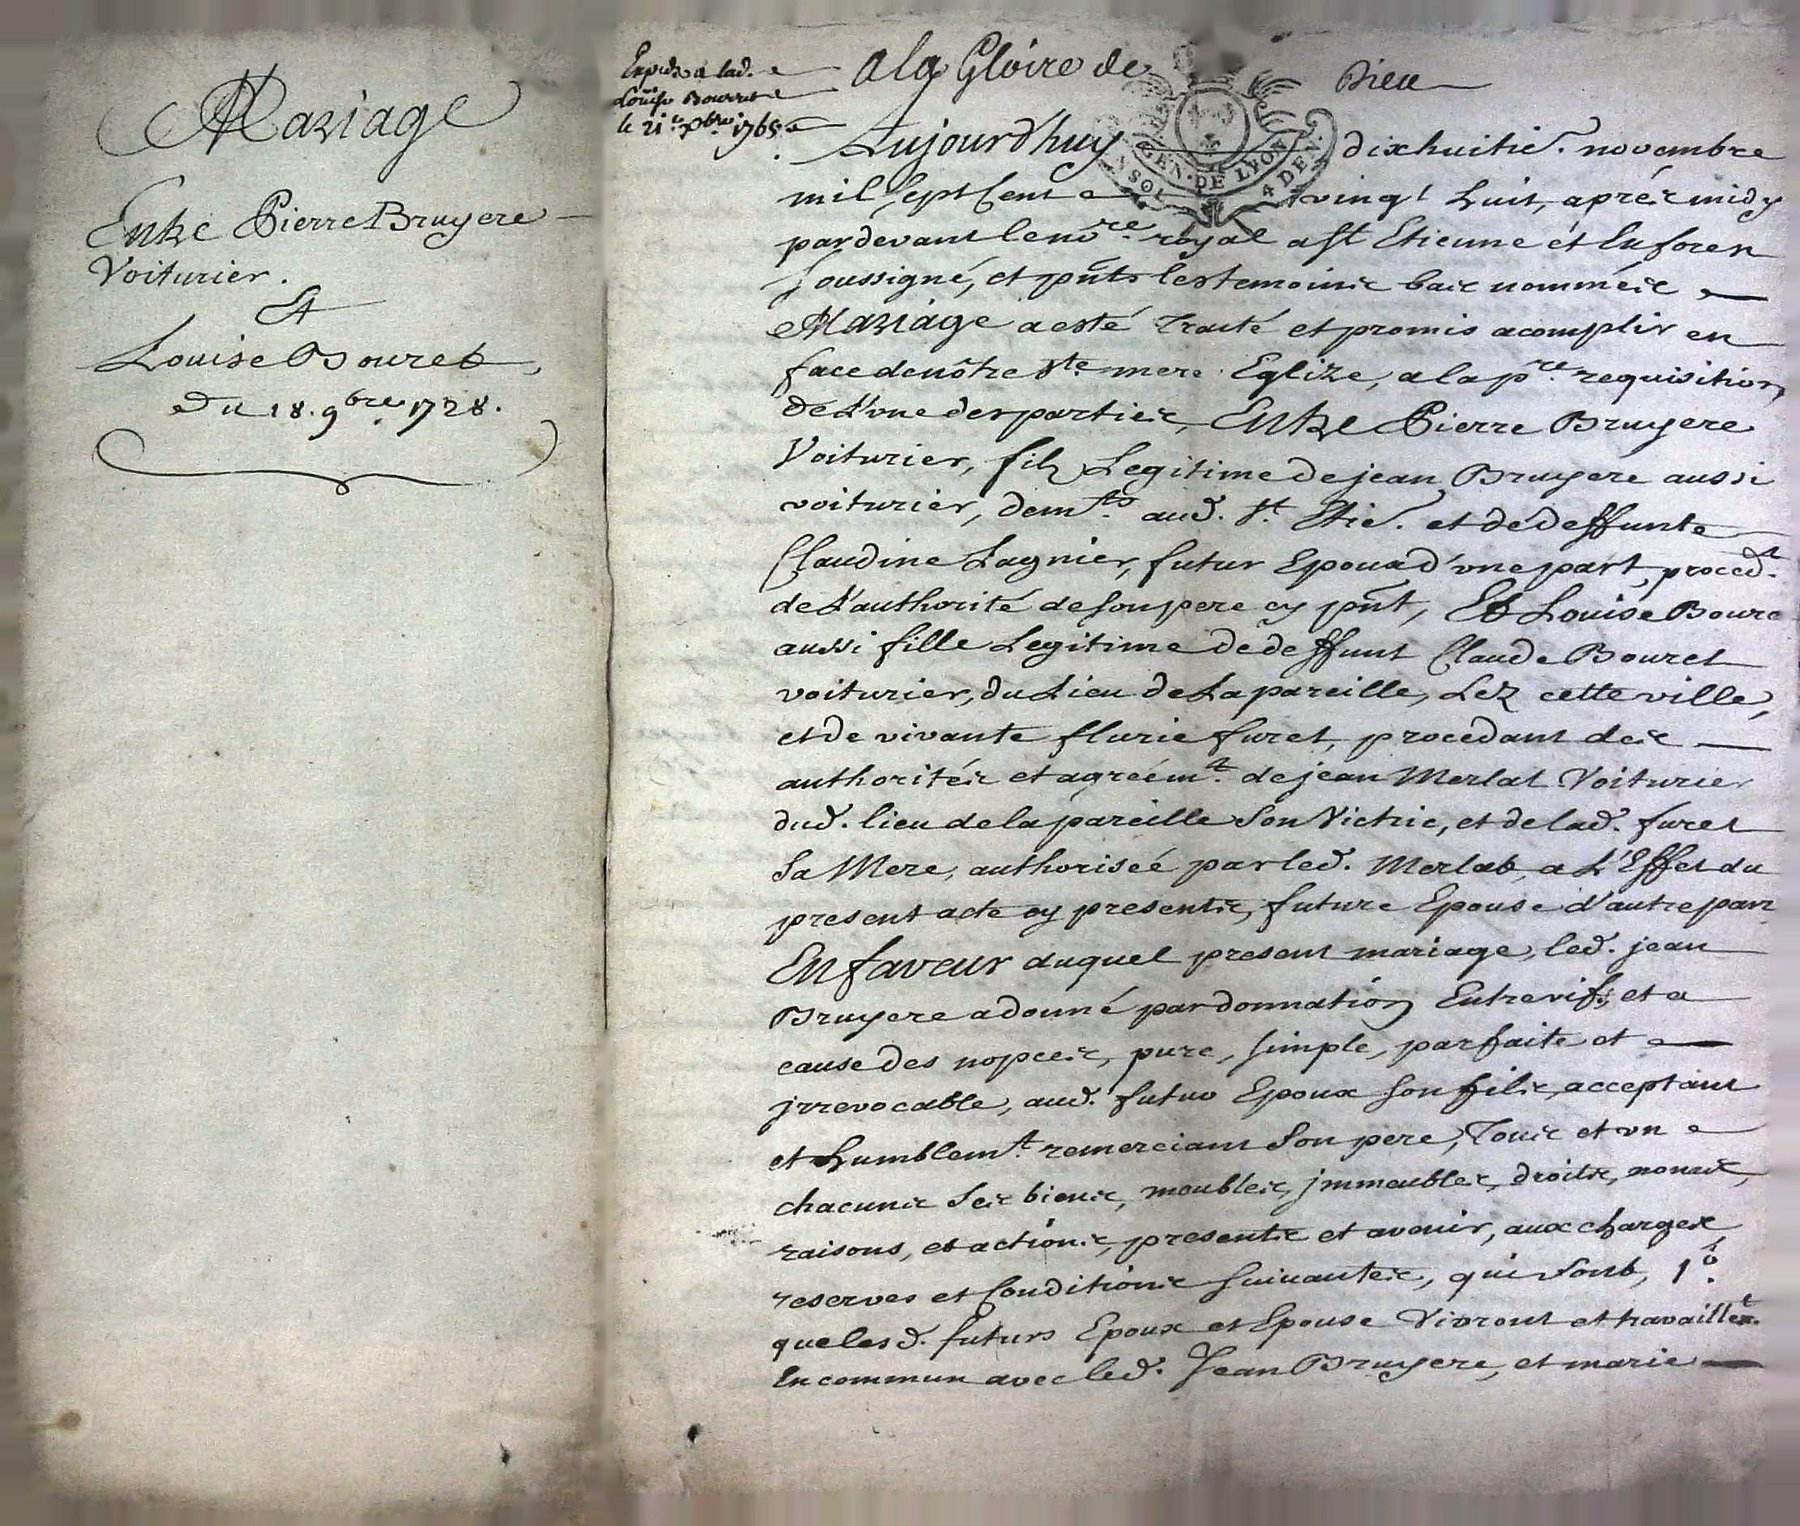 Mariage
Entre Pierre Bruyere
Voiturier.
Et
Louise Bouret,
du 18. 9bre. 1728.
Expedié a lad.
Louise Bourret
le 21e 7bre 1765
A la Gloire de Dieu
GEN. DE LYON
SOL 4 DEN.
Aujourd'huy dixhuitie. novembre
mil sept Cent vingt huit, aprés midy
pardevant le nore. royal a St Etienne et En forez
soussigné, et pnts les temoins bas nommés
Mariage a esté Traité et promis acomplir en
face de nôtre Ste. mere Eglize, a la pre. requisition
de L'vne des parties, Entre Pierre Bruyere
Voiturier, filz Legitime de jean Bruyere aussi
voiturier, demts. aud. St. Etie. et de deffunte
Claudine Lagnier, futur Epoux d'vne part, procedt.
de L'authorité de son pere cy pnt, Et Louise Boure
aussi fille Legitime de deffunt Claude Bouret
voiturier, du Lieu de La pareille, Lez cette ville,
et de vivante flurie furet, procedant des
authorités et agréemt. de jean Merlat Voiturier
dud. lieu de la pareille son Vitric, et de lad. furet
sa Mere, authorisée par led. Merlat, a L'Effet du
present acte cy presents, future Epouse d'autre part
En faveur duquel present mariage, led. jean
Bruyere a donné par donnation Entre vifs, et a
cause des nopces, pure, simple, parfaite et
jrrevocable, aud. futur Epoux son fils, acceptant
et humblemt. remerciant son pere, Tous et vn
chacuns ses biens, meubles, jmmeubles, droits, noms,
raisons, et actions, presents et avenir, aux charges,
reserves et Conditions suivantes, qui sont, 1o.
que lesd. futurs Epoux et Epouse Vivront et travaillert.
En commun avec led. Jean Bruyere, et marie